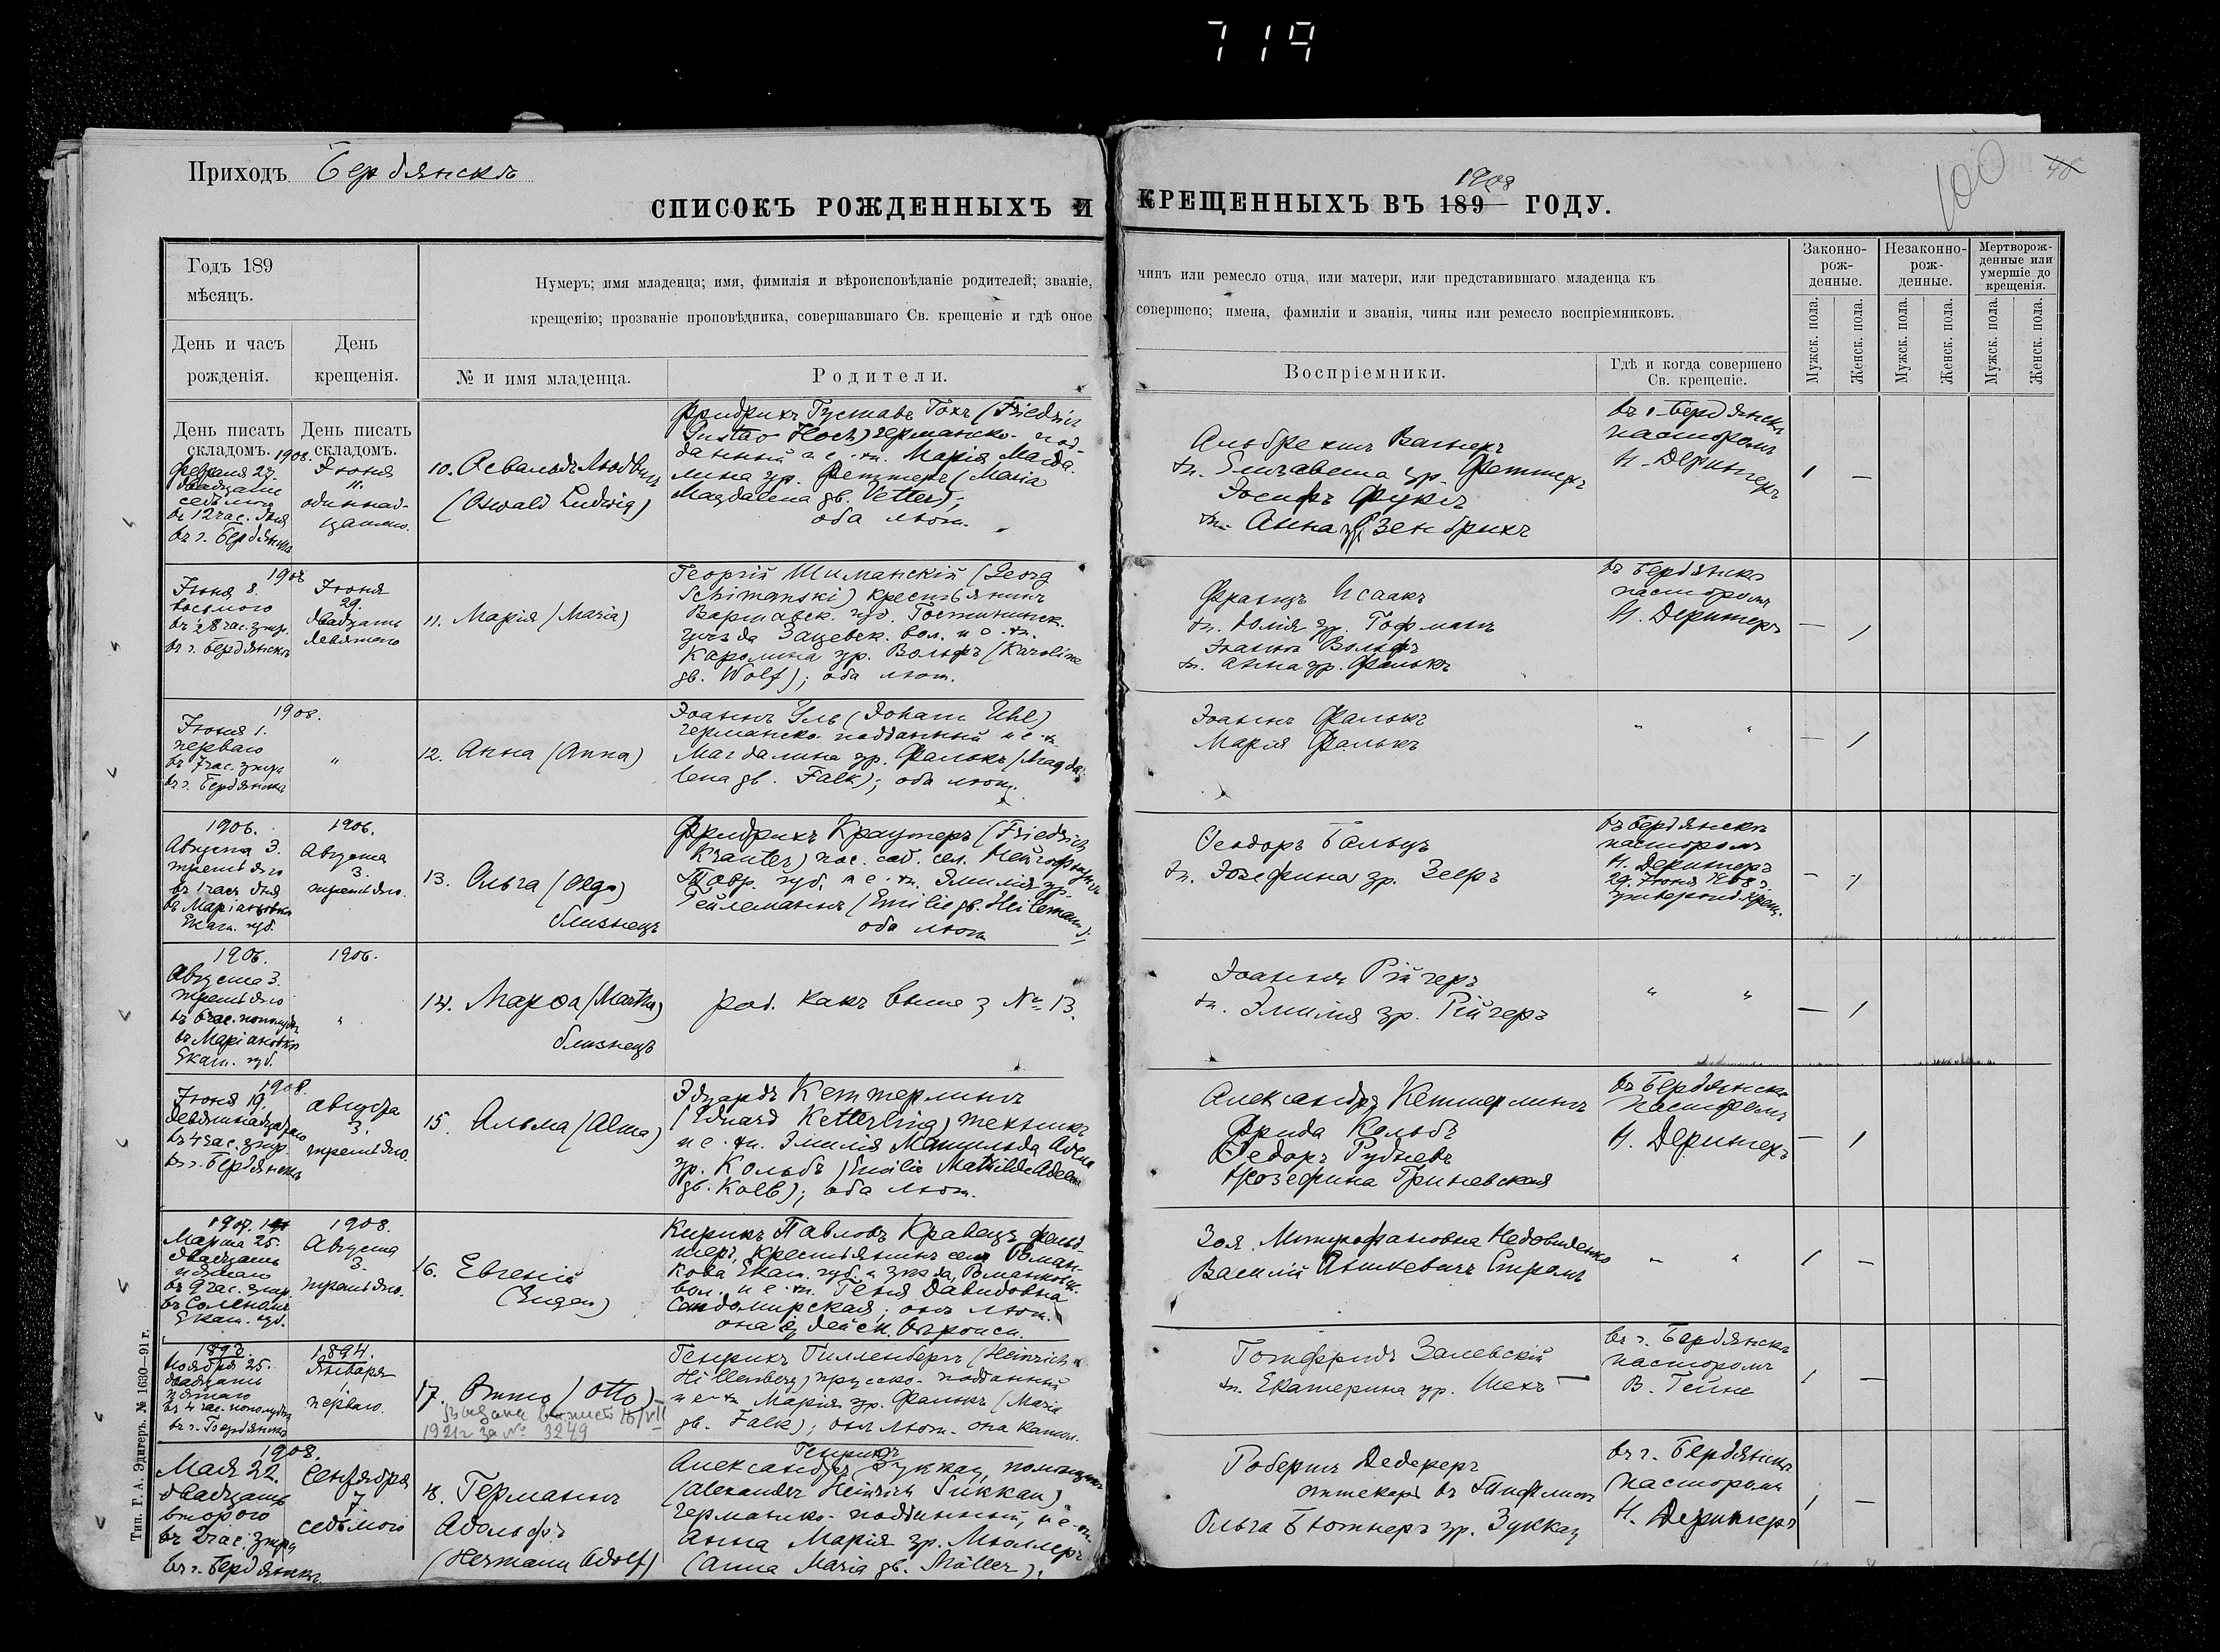 719
Приходъ Бердянскъ
100
48
1908
СПИСОКЪ РОЖДЕННЫХЪ И КРЕЩЕННЫХЪ ВЪ 189 ГОДУ.
Годъ 189
мѣсяцъ.
День и часъ
рожденія.
День
крещенія.
Нумеръ; имя младенца; имя, фимилія и вѣроисповѣданіе родителей; званіе, чинъ или ремесло отца, или матери, или представившаго младенца къ
крещенію; прозваніе проповѣдника, совершавшаго Св. крещеніе и гдѣ оное совершено; имена, фамиліи и званія, чины или ремесло воспріемниковъ.
№ и имя младенца.
Родители.
Воспріемники.
Гдѣ и когда совершено
Св. крещеніе.
Законно-
рож-
денные.
Незаконно-
рож-
денные.
Мертворож-
денные или
умершіе до
крещенія.
Мужск. пола.
Женск. пола.
Мужск. пола.
Женск. пола.
Мужск. пола.
Женск. пола.
День писать
складомъ.
День писать
складомъ.
1908.
Февраля 27.
двадцать
седьмого
въ 12 час. дня
въ г. Бердянскѣ
Іюня
11.
одиннад-
цатаго.
10. Освальдъ Людвигъ
(Oswald Ludwig)
Фридрихъ Густавъ Гохъ (Friedrich
Gustav Hoch) германско-под-
данный и е. ж. Марія Магда-
лина ур. Феттеръ (Maria
Magdalena gb. Vetter);
оба лют.
Альбрехтъ Вагнеръ
ж. Елизавета ур. Феттеръ
Іосифъ Фуксъ
ж. Анна ур. Зенбрихъ
въ г. Бердянскѣ
пасторомъ
Н. Дерингеръ
1 —
1908
Іюня 8.
восьмого
въ 28 час. утр.
въ г. Бердянскѣ
Іюня
29.
двадцать
девятаго
11. Марія (Maria)
Георгій Шиманскій (Georg
Schimanski) крестьянинъ
Варшавск. губ. Гостынинск.
уѣзда Зацевск. вол. и е. ж.
Каролина ур. Вольфъ (Karoline
gb. Wolf); оба лют.
Францъ Исаакъ
ж. Юлія ур. Гофманъ
Іоаннъ Вольфъ
ж. Анна ур. Фалькъ
въ Бердянскѣ
пасторомъ
Н. Дерингеръ
— 1
1908.
Іюня 1.
перваго
въ 7 час. утра
въ г. Бердянскѣ
"
12. Анна (Anna)
Іоаннъ Уль (Johann Uhl)
германско-подданный и е. ж.
Магдалина ур. Фалькъ (Magda-
lena gb. Falk); оба лют.
Іоаннъ Фалькъ
Марія Фалькъ
" "
— 1
1906.
Августа 3.
третьяго
въ 1 часъ дня
въ Маріановкѣ
Екат. губ.
1906.
Августа
3.
третьяго.
13. Ольга (Olga)
близнецъ
Фридрихъ Краутеръ (Friedrich
Krauter) пос. соб. сел. Нейгофнунгъ
Тавр. губ. и е. ж. Эмилія ур.
Гейлеманнъ (Emilie gb. Heilemann);
оба лют
Ѳеодоръ Бальцъ
ж. Іозефина ур. Зееръ
въ Бердянскѣ
пасторомъ
Н. Дерингеръ
29. Іюня 1908 г.
утвержд. крещ.
— 1
1906.
Августа 3.
третьяго
въ 6 час. пополудн.
въ Маріановкѣ
Екат. губ.
1906.
"
14. Марѳа (Martha)
близнецъ
род. какъ выше у № 13.
Іоаннъ Рійгеръ
ж. Эмилія ур. Рійгеръ
" "
— 1
1908.
Іюня 19.
девятнадцатаго
въ 4 час. утр.
въ г. Бердянскѣ
Августа
3.
третьяго.
15. Альма (Alma)
Эдуардъ Кеттерлингъ
(Eduard Ketterling) техникъ
и е. ж. Эмилія Матильда Адела
ур. Кольбъ (Emilie Mathilde Adele
gb. Kolb); оба лют.
Александръ Кеттерлингъ
Фрида Кольбъ
Ѳедоръ Рудневъ
Іозефина Гриневская
въ Бердянскѣ
пасторомъ
Н. Дерингеръ
— 1
1907.
Марта 25.
двадцать
пятаго
въ 9 час. утр.
въ Соленомъ
Екат. губ.
1908.
Августа
3.
третьяго.
16. Евгеній
(Eugen)
Кирикъ Павловъ Кравецъ фельд-
шеръ, крестьянинъ села Роман-
кова Екат. губ. и уѣзда, Романковск.
вол. и е. ж. Геня Давидовна
Сандомирская; онъ лют.
она іудейск. вѣроисп.
Зоя Митрофановна Недовиденко
Василій Стромъ
" "
1 —
1893.
Ноября 25.
двадцать
пятаго
въ 4 час. пополудн.
въ г. Бердянскѣ
1894.
Января
1
перваго.
17. Отто (Otto)
1921 г за № 3249
Генрихъ Гилленбергъ (Heinrich
Hillenberg) прусско-подданный
и е. ж. Марія ур. Фалькъ (Maria
gb. Falk); онъ лют. она катол.
Готфридъ Залевскій
ж. Екатерина ур. Шехъ
въ г. Бердянскѣ
пасторомъ
В. Гейне
1 —
1908.
Мая 22.
двадцать
второго
въ 2 час. утра
въ г. Бердянскѣ
Сентября
7.
седьмого
18. Германнъ
Адольфъ
(Hermann Adolf)
Генрихъ
Александръ Зуккау, помощникъ
(Alexander Heinrich Sukkau)
германско-подданный, и е. ж.
Анна Марія ур. Мюллеръ
(Anna Maria gb. Müller).
Робертъ Дедереръ
аптекарь въ
Ольга Бютнеръ ур. Зуккау
въ г. Бердянскѣ
пасторомъ
Н. Дерингеръ
1 —
Тип. Г. А. Эдигеръ. № 1630—91 г.